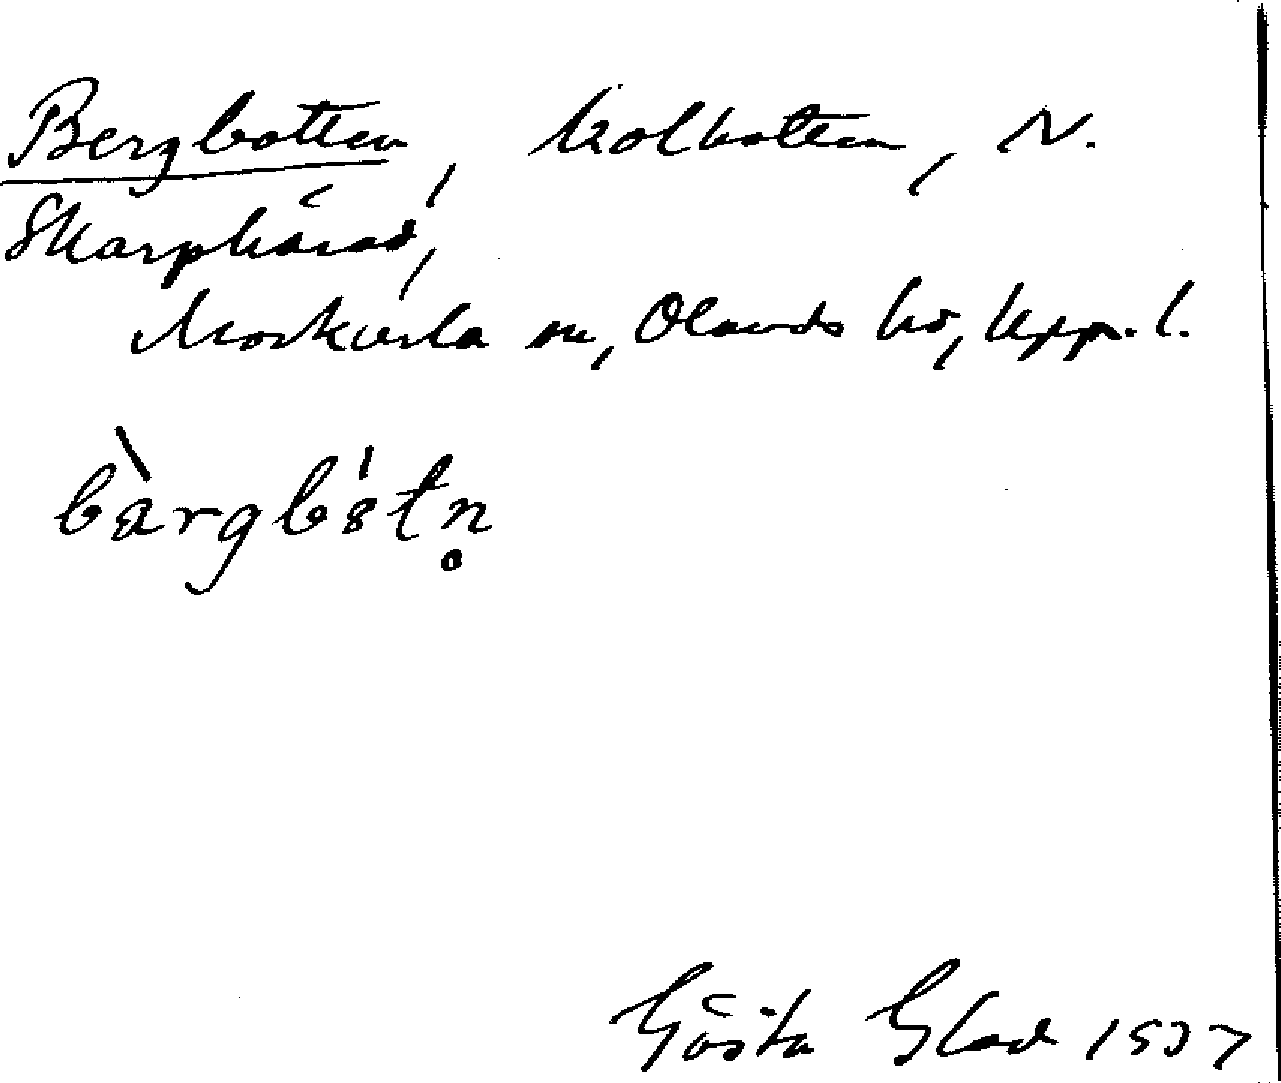 Bergbotten, kolbotten, N.
Skarphärad,
Morkarla sn, Olands hd, Uppl.
bàrgbótn̥
Gösta Glad 1937